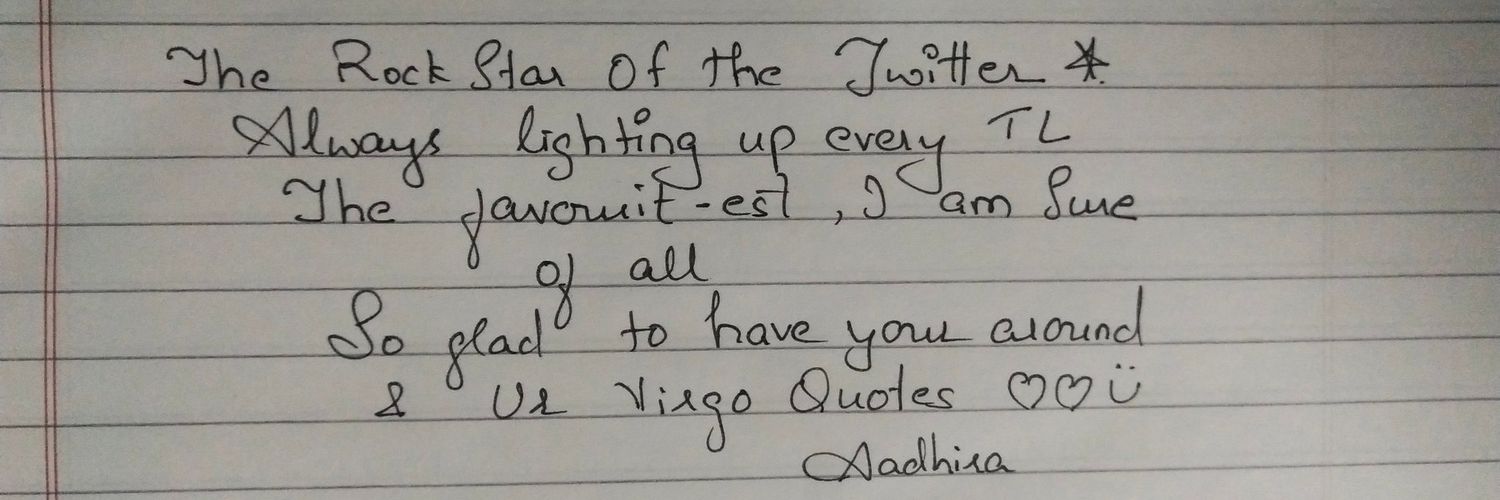 The Rock Star Of the Twitter *
Always lighting up every TL
The favourit-est, I am Sure
of all
So glad to have your around
& Ur Virgo Quotes ♡♡ü
Aadhira